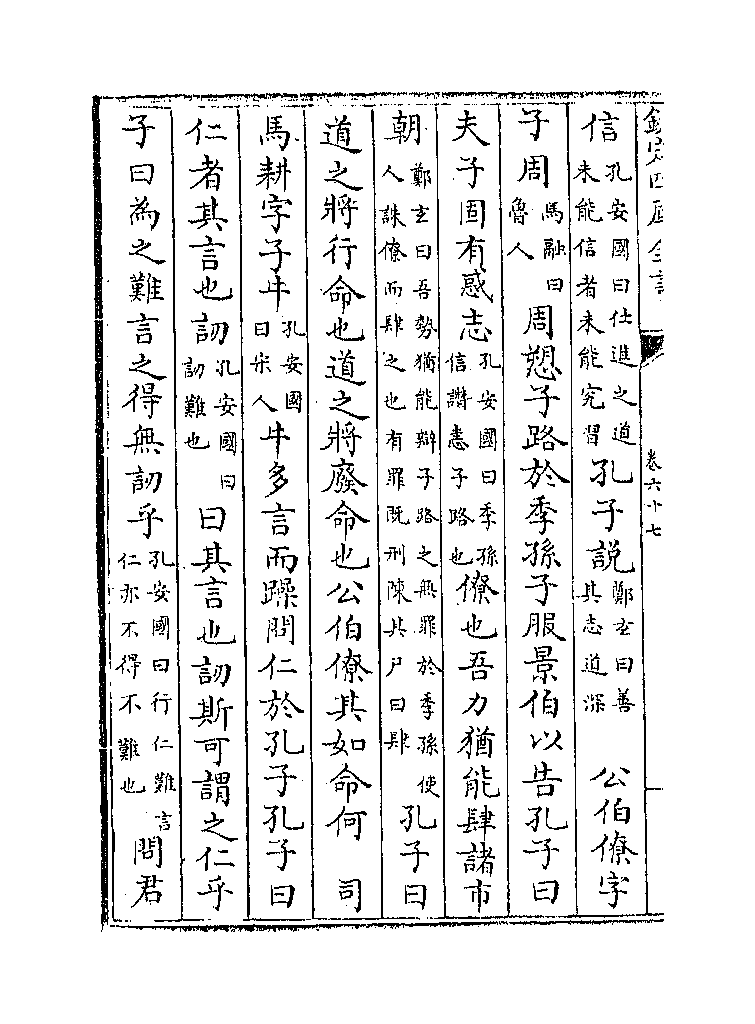 欽定四庫全書 卷六十七
信孔安國曰仕進之道未能信者未能究習孔子說鄭玄曰善其志道深 公伯僚字
子周馬融曰魯人周愬子路於季孫子服景伯以告孔子曰
夫子固有惑志孔安國曰季孫信讒恚子路也僚也吾力猶能肆諸市
朝鄭玄曰吾勢猶能辯子路之無罪於季孫使人誅僚而肆之也有罪既刑陳其尸曰肆孔子曰
道之將行命也道之將廢命也公伯僚其如命何 司
馬耕字子牛孔安國曰宋人牛多言而躁問仁於孔子孔子曰
仁者其言也訒孔安國曰訒難也曰其言也訒斯可謂之仁乎
子曰為之難言之得無訒乎孔安國曰行仁難言仁亦不得不難也問君